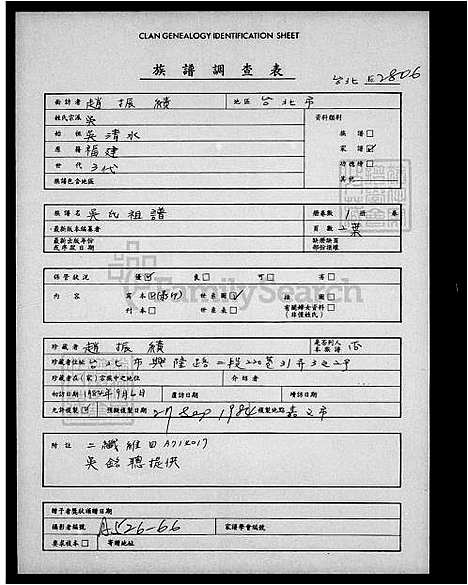 CLAN GENEALOGY IDENTIFICATION SHEET
族譜調查表
台北 E2806
面訪者 趙振績 地區 台北市
姓氏宗派 吳 資料類別
始祖 吳清水 族譜□
原籍 福建 家譜☑
世代 3代 功德榜□
族譜包含地區 其他
族譜名 吳氏祖譜 總卷數 1 冊 卷
最新版本編纂者 頁數 二葉
最新出版年份 缺損缺頁
或序跋日期 部份複裱
保管狀況 優☑ 良□ 可□ 劣□
內容 寫本□(影印) 世系圖☑ 插圖□
刊本□ 世系表□ 有關婦女資料□
(非僅姓氏)
FamilySearch
珍藏者 趙振績 是否列入本族譜 否
珍藏者住址 台北市興隆路二段220巷31弄3之2号
珍藏者在(家)宗族中之地位 介紹者
初訪日期 1984年9月6日 覆訪日期 續訪日期
允許複製☑ 預擬複製日期 27 Sep 1984 複製地點 嘉文市
附註 二纖維日 A714017
吳銘聰提供
贈予者獎狀頒贈日期
攝影者編號 A526-66 家譜學會編號
要求複本□ 寄贈地址